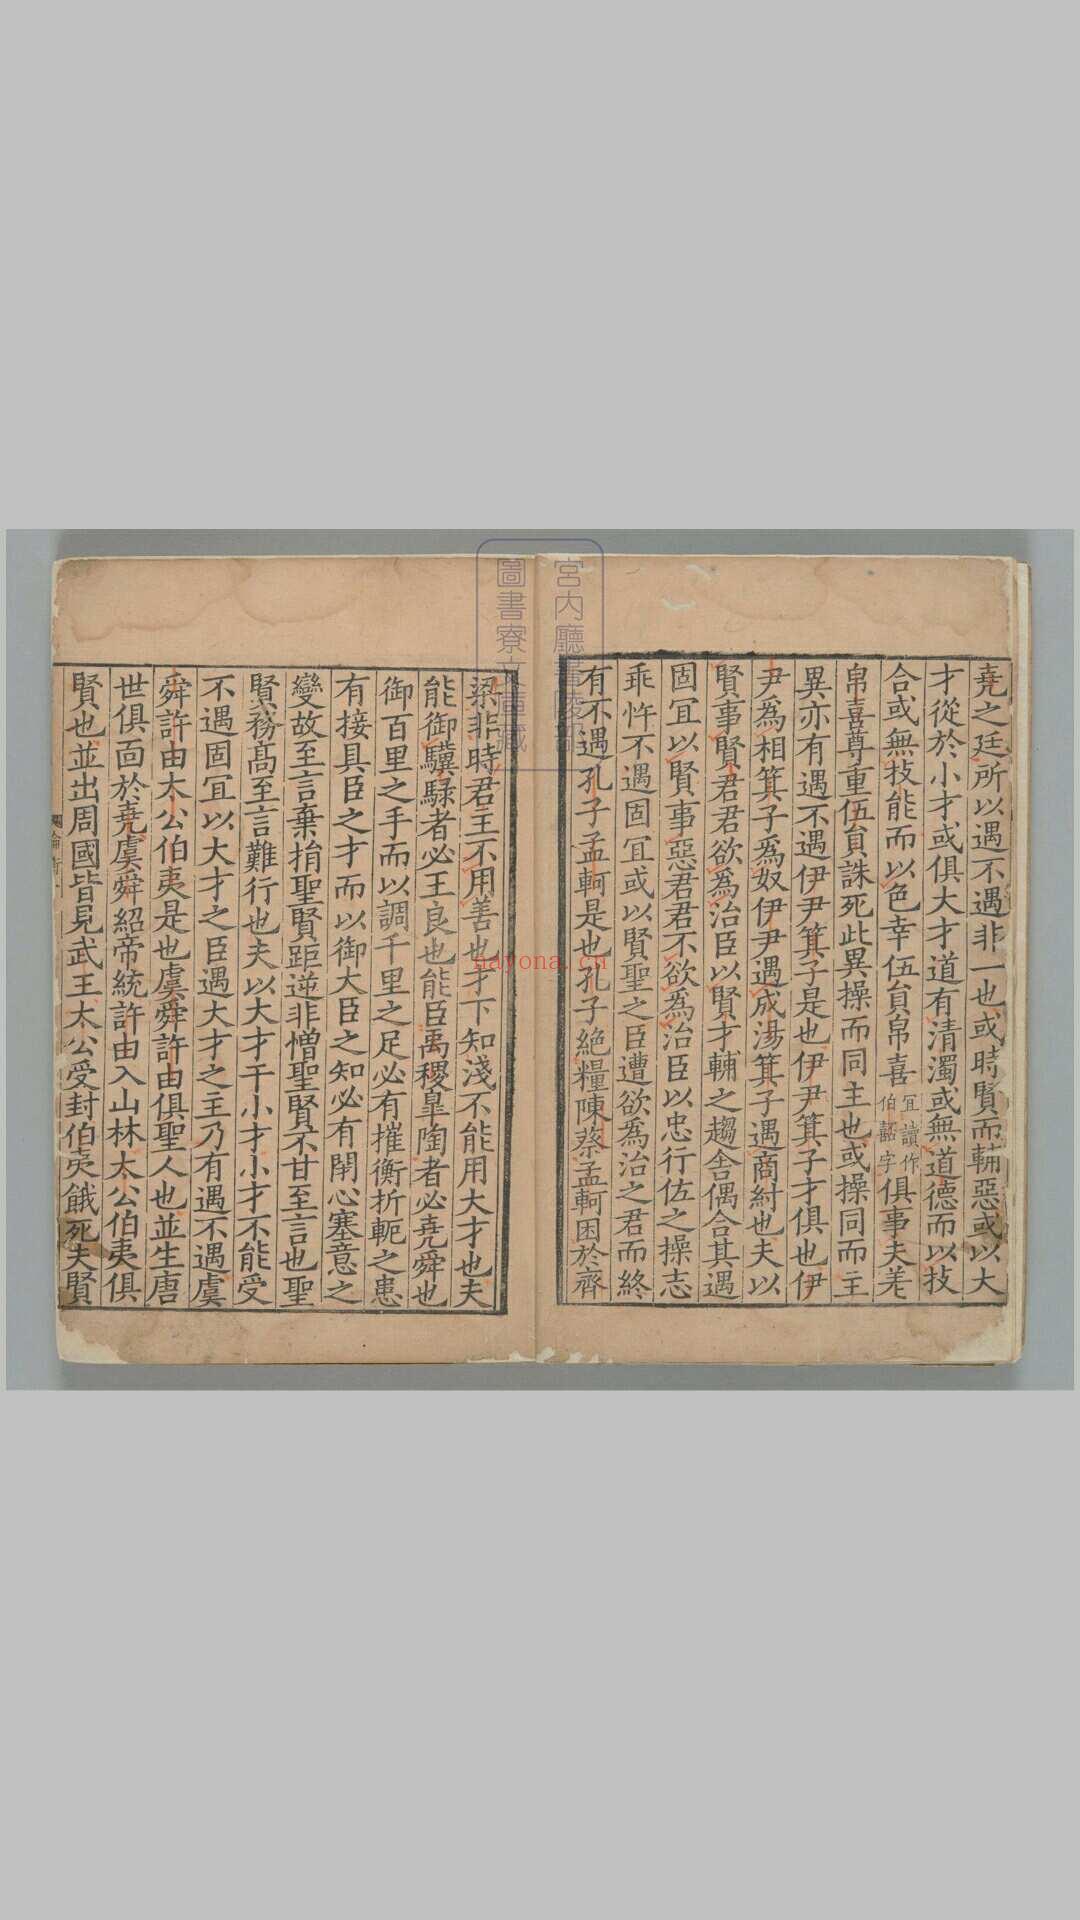 堯之廷所以遇不遇非一也或時賢而輔惡或以大
才從於小才或俱大才道有清濁或無道德而以技
合或無技能而以色幸伍貟帛喜冝讀作伯嚭字俱事夫差
帛喜尊重伍貟誅死此異操而同主也或操同而主
異亦有遇不遇伊尹箕子是也伊尹箕子才俱也伊
尹為相箕子為奴伊尹遇成湯箕子遇商紂也夫以
賢事賢君君欲為治臣以賢才輔之趨舍偶合其遇
固冝以賢事惡君君不欲為治臣以忠行佐之操志
乖忤不遇固冝或以賢聖之臣遭欲為治之君而終
有不遇孔子孟軻是也孔子絶糧陳蔡孟軻困於齊
梁非時君主不用善也才下知淺不能用大才也夫
能御驥騄者必王良也能臣禹稷臯陶者必堯舜也
御百里之手而以調千里之足必有摧衡折軛之患
有接具臣之才而以御大臣之知必有閉心塞意之
變故至言棄捐聖賢距逆非憎聖賢不甘至言也聖
賢務髙至言難行也夫以大才干小才小才不能受
不遇固冝以大才之臣遇大才之主乃有遇不遇虞
舜許由太公伯夷是也虞舜許由俱聖人也並生唐
世俱面於堯虞舜紹帝統許由入山林太公伯夷俱
賢也並出周國皆見武王太公受封伯夷餓死夫賢
論衡一
宮内廳書陵部
圖書寮文庫藏
nayona.cn